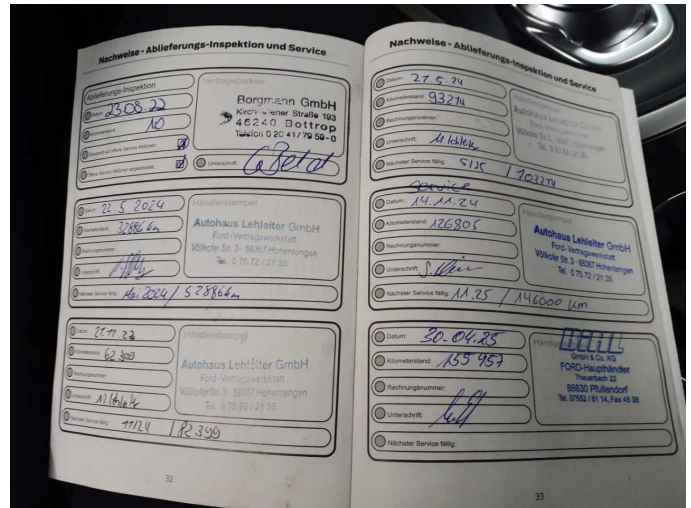 Nachweise - Ablieferungs-Inspektion und Service
Ablieferungs-Inspektion
Datum: 23.08.22
Kilometerstand: 10
Überprüft auf offene Service Aktionen:
Offene Service Aktionen abgearbeitet:
Vertragspartner
Borgmann GmbH
Straße 193
46240 Bottrop
Telefon 0 20 41/79 59-0
Unterschrift:
Datum: 22.5 2024
Kilometerstand: 32886 km
Rechnungsnummer:
Unterschrift:
Nächster Service fällig: Mai 2024 / 52886km
Händlerstempel
Autohaus Lehleiter GmbH
Ford-Vertragswerkstatt
Völlkofer Str. 3 - 88367 Hohentengen
Tel. 0 75 72 / 21 35
Datum:
Kilometerstand:
Rechnungsnummer:
Unterschrift:
Nächster Service fällig: 11/24 / 82399
Händlerstempel
Autohaus Lehleiter GmbH
Ford-Vertragswerkstatt
Völlkofer Str. 3 - 88367 Hohentengen
Tel. 0 75 72 / 21 35
32
Nachweise - Ablieferungs-Inspektion und Service
Datum: 27.5.24
Kilometerstand: 93274
Rechnungsnummer:
Unterschrift:
Nächster Service fällig: 5125 / 103274
Händlerstempel
Autohaus Lehleiter GmbH
Ford-Vertragswerkstatt
Völlkofer Str. 3 - 88367 Hohentengen
Tel. 0 75 72 / 21 35
Service
Datum: 14.11.24
Kilometerstand: 126805
Rechnungsnummer:
Unterschrift:
Nächster Service fällig: 11.25 / 146000 km
Händlerstempel
Autohaus Lehleiter GmbH
Ford-Vertragswerkstatt
Völlkofer Str. 3 - 88367 Hohentengen
Tel. 0 75 72 / 21 35
Datum: 30-04.25
Kilometerstand: 155957
Rechnungsnummer:
Unterschrift:
Nächster Service fällig:
GmbH & Co. KG
FORD-Haupthändler
Theuerbach 22
88630 Pfullendorf
Tel. 07552 / 81 14, Fax 45 38
33